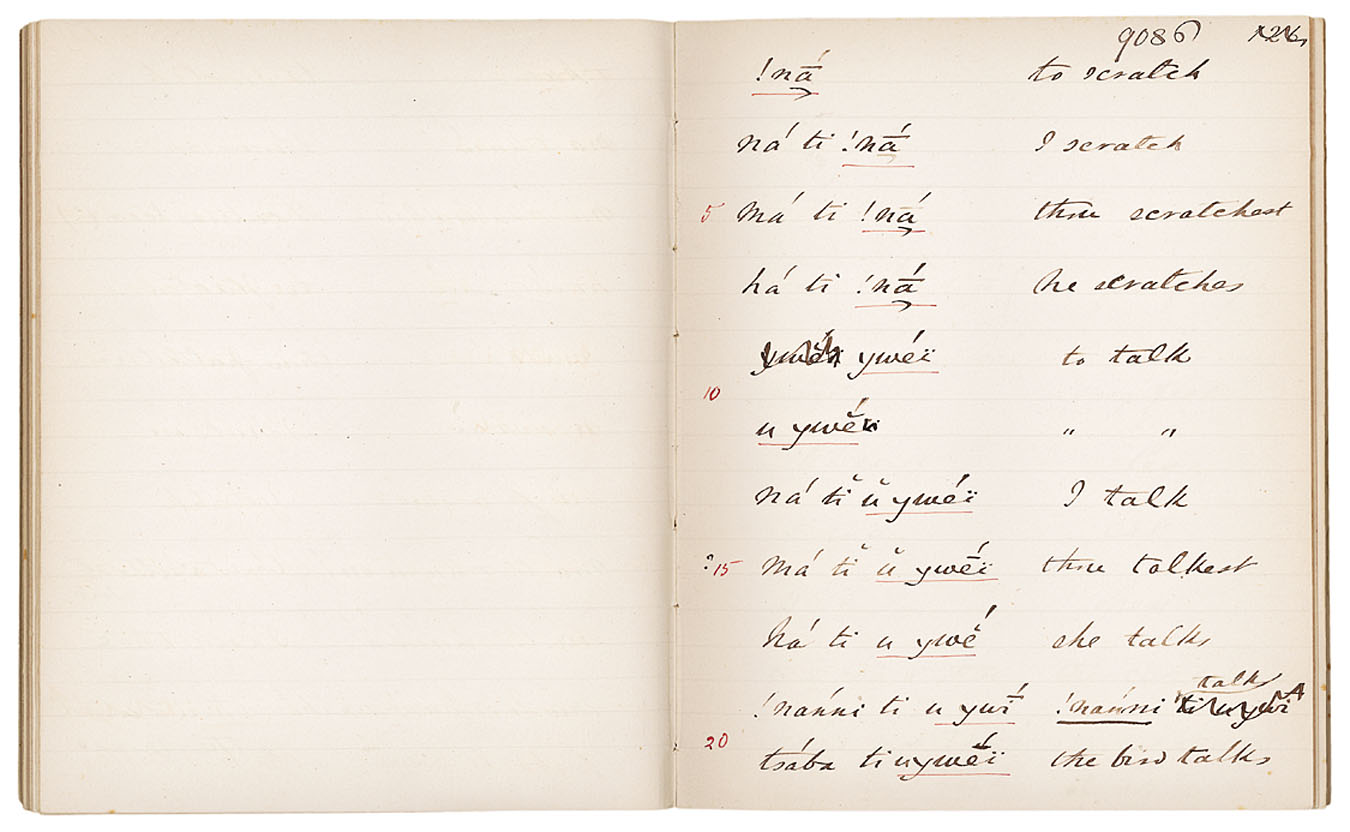 9086
!nā́ to scratch
ná ti !nā́ I scratch
5 má ti !nā́ thou scratchest
há ti !nā́ he scratches
ywéï to talk
10
u ywĕ́ï " "
ná tĭ ŭ ywéï I talk
?15 má tĭ ŭ ywḗï thou talkest
há ti u ywĕ́ she talks
talks
!nańni ti u ywī́ !nańni
20
tsába ti u ywĕ́ï the bird talks